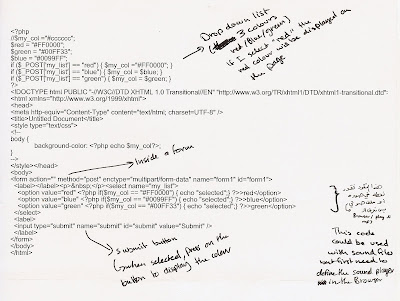 <?php
//$my_col ="#cccccc";
$red = "#FF0000";
$green = "#00FF33";
$blue = "#0099FF";
if ($_POST['my_list'] == "red") { $my_col = "#FF0000"; }
if ($_POST['my_list'] == "blue") { $my_col = $blue; }
if ($_POST['my_list'] == "green") { $my_col = $green; }
?>
<!DOCTYPE html PUBLIC "-//W3C//DTD XHTML 1.0 Transitional//EN" "http://www.w3.org/TR/xhtml1/DTD/xhtml1-transitional.dtd">
<html xmlns="http://www.w3.org/1999/xhtml">
<head>
<meta http-equiv="Content-Type" content="text/html; charset=UTF-8" />
<title>Untitled Document</title>
<style type="text/css">
<!--
body {
background-color: <?php echo $my_col?>;
}
-->
</style></head>
<body>
<form action="" method="post" enctype="multipart/form-data" name="form1" id="form1">
<label></label><p>&nbsp;</p><select name="my_list">
<option value="red" <?php if($my_col == "#FF0000") { echo "selected";} ?>>red</option>
<option value="blue" <?php if($my_col == "#0099FF") { echo "selected";} ?>>blue</option>
<option value="green" <?php if($my_col == "#00FF33") { echo "selected";} ?>>green</option>
</select>
<label>
<input type="submit" name="submit" id="submit" value="Submit" />
</label>
</form>
</body>
</html>
Drop down list
3 colours
red/blue/green)
if I select "red" the
red colour will be displayed on
the page
Inside a forum
submit button
when selected, press on the
button to display the colour
This code
could be used
with sound files
but first need to
define the sound player
in the Browser